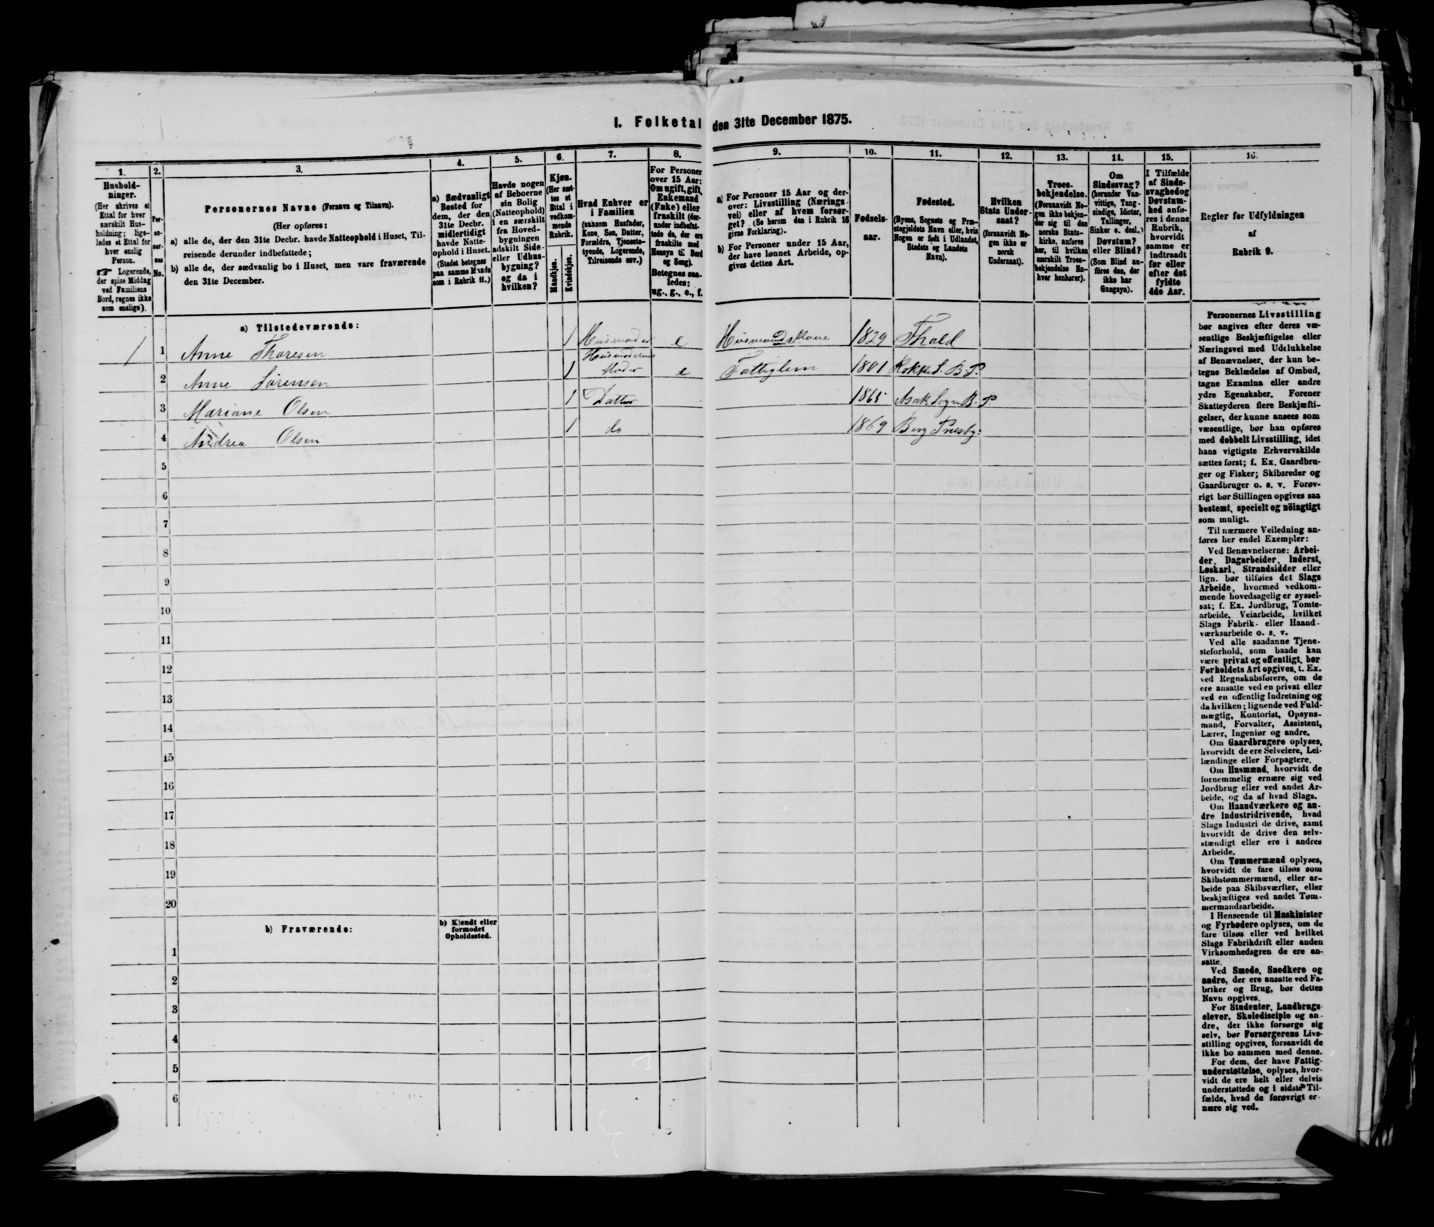 I. Folketal den 31te December 1875.
1.
Husholdninger.
(Her skrives et Ettal for hver særskilt Husholdning; ligeledes et Ettal for hver enslig Person.
Logerende, der spise Middag ved Familiens Bord, regnes ikke som enslige).
2.
Personernes No.
3.
Personernes Navne (Fornavn og Tilnavn).
(Her opføres:
a) alle de, der den 31te Decbr. havde Natteophold i Huset, Tilreisende derunder indbefattede;
b) alle de, der sædvanlig bo i Huset, men vare fraværende den 31te December.
4.
a) Sædvanligt Bosted for dem, der den 31te Decbr. midlertidigt havde Natteophold i Huset.
(Stedet betegnes paa samme Maade som i Rubrik 11.)
5.
Havde nogen af Beboerne sin Bolig (Natteophold) i en særskilt fra Hovedbygningen adskilt Side- eller Udhusbygning? og da i hvilken?
6.
Kjøn.
(Her sættes et Ettal i vedkommende Rubrik.
Mandkjøn.
Kvindekjøn.
7.
Hvad Enhver er i Familien
(saasom Husfader, Kone, Søn, Datter, Forældre, Tjenestetyende, Logerende, Tilreisende osv.)
8.
For Personer over 15 Aar: Om ugift, gift, Enkemand (Enke) eller fraskilt (derunder indbefattede de, der ere fraskilte med Hensyn til Bord og Seng).
Betegnes saaledes: ug., g., e., f.
9.
a) For Personer 15 Aar og derover: Livsstilling (Næringsvei) eller af hvem forsørget? (Se herom den i Rubrik 16 givne Forklaring).
b) For Personer under 15 Aar, der have lønnet Arbeide, opgives dettes Art.
10.
Fødselsaar.
11.
Fødested.
(Byens, Sognets og Præstegjeldets Navn eller, hvis Nogen er født i Udlandet, Stedets og Landets Navn).
12.
Hvilken Stats Undersaat?
(forsaavidt Nogen ikke er norsk Undersaat).
13.
Troesbekjendelse.
(Forsaavidt Nogen ikke bekjender sig til den norske Statskirke, anføres her, til hvilken særskilt Troesbekjendelse Enhver henhører).
14.
Om Sindssvag? (herunder Vanvittige, Tungsindige, Idioter, Tullinger, Sinker o. desl.)
Døvstum? eller Blind?
(Som Blind anføres den, der ikke har Gangsyn).
15.
I Tilfælde af Sindssvaghed og Døvstumhed anføres i denne Rubrik, hvorvidt samme er indtraadt før eller efter det fyldte 4de Aar.
16.
Regler for Udfyldningen
af
Rubrik 9.
a) Tilstedeværende:
1 1 Anne Thoresen 1 Husmoder e Husmandskone 1829 Thold
2 Anne Sørensen 1 Husmoderens Moder e Fattiglem 1801 B. P.
3 Mariane Olsen 1 Datter 1865 Asak Sogn B. P
4 Andrea Olsen 1 do 1869 Berg Præstg.
5
6
7
8
9
10
11
12
13
14
15
16
17
18
19
20
b) Fraværende:
b) Kjendt eller formodet Opholdssted.
1
2
3
4
5
6
Personernes Livsstilling
bør angives efter deres væ-
sentlige Beskjæftigelse eller
Næringsvei med Udelukkelse
af Benævnelser, der kun be-
tegne Beklædelse af Ombud,
tagne Examina eller andre
ydre Egenskaber. Forener
Skatteyderen flere Beskjæfti-
gelser, der kunne ansees som
væsentlige, bør han opføres
med dobbelt Livsstilling, idet
hans vigtigste Erhvervskilde
sættes først; f. Ex. Gaardbru-
ger og Fisker; Skibsreder og
Gaardbruger o. s. v. Forøv-
rigt bør Stillingen opgives saa
bestemt, specielt og nöiagtigt
som muligt.
Til nærmere Veiledning an-
føres her endel Exempler:
Ved Benævnelserne: Arbei-
der, Dagarbeider, Inderst,
Løskarl, Strandsidder eller
lign. bør tilføies det Slags
Arbeide, hvormed vedkom-
mende hovedsagelig er syssel-
sat; f. Ex. Jordbrug, Tomte-
arbeide, Veiarbeide, hvilket
Slags Fabrik- eller Haand-
værksarbeide o. s. v.
Ved alle saadanne Tjene-
steforhold, som baade kan
være privat og offentligt, bør
Forholdets Art opgives, f. Ex.
ved Regnskabsførere, om de
ere ansatte ved en privat eller
ved en offentlig Indretning og
da hvilken; lignende ved Fuld-
mægtig, Kontorist, Opsyns-
mand, Forvalter, Assistent,
Lærer, Ingeniør og andre.
Om Gaardbrugere oplyses,
hvorvidt de ere Selveiere, Lei-
lændinge eller Forpagtere.
Om Husmænd, hvorvidt de
fornemmelig ernære sig ved
Jordbrug eller ved andet Ar-
beide, og da af hvad Slags.
Om Haandværkere og an-
dre Industridrivende, hvad
Slags Industri de drive, samt
hvorvidt de drive den selv-
stændigt eller ere i andres
Arbeide.
Om Tømmermænd oplyses,
hvorvidt de fare tilsøs som
Skibstømmermænd, eller ar-
beide paa Skibsværfter, eller
beskjæftiges ved andet Tøm-
mermandsarbeide.
I Henseende til Maskinister
og Fyrbødere oplyses, om de
fare tilsøs eller ved hvilket
Slags Fabrikdrift eller anden
Virksomhedsgren de ere an-
satte.
Ved Smede, Snedkere og
andre, der ere ansatte ved Fa-
briker og Brug, bør dettes
Navn opgives.
For Studenter, Landbrugs-
elever, Skoledisciple og an-
dre, der ikke forsørge sig
selv, bør Forsørgerens Livs-
stilling opgives, forsaavidt de
ikke bo sammen med denne.
For dem, der have Fattig-
understøttelse, oplyses, hvor-
vidt de ere helt eller delvis
understøttede og i sidste Til-
fælde, hvad de forøvrigt er-
nære sig ved.